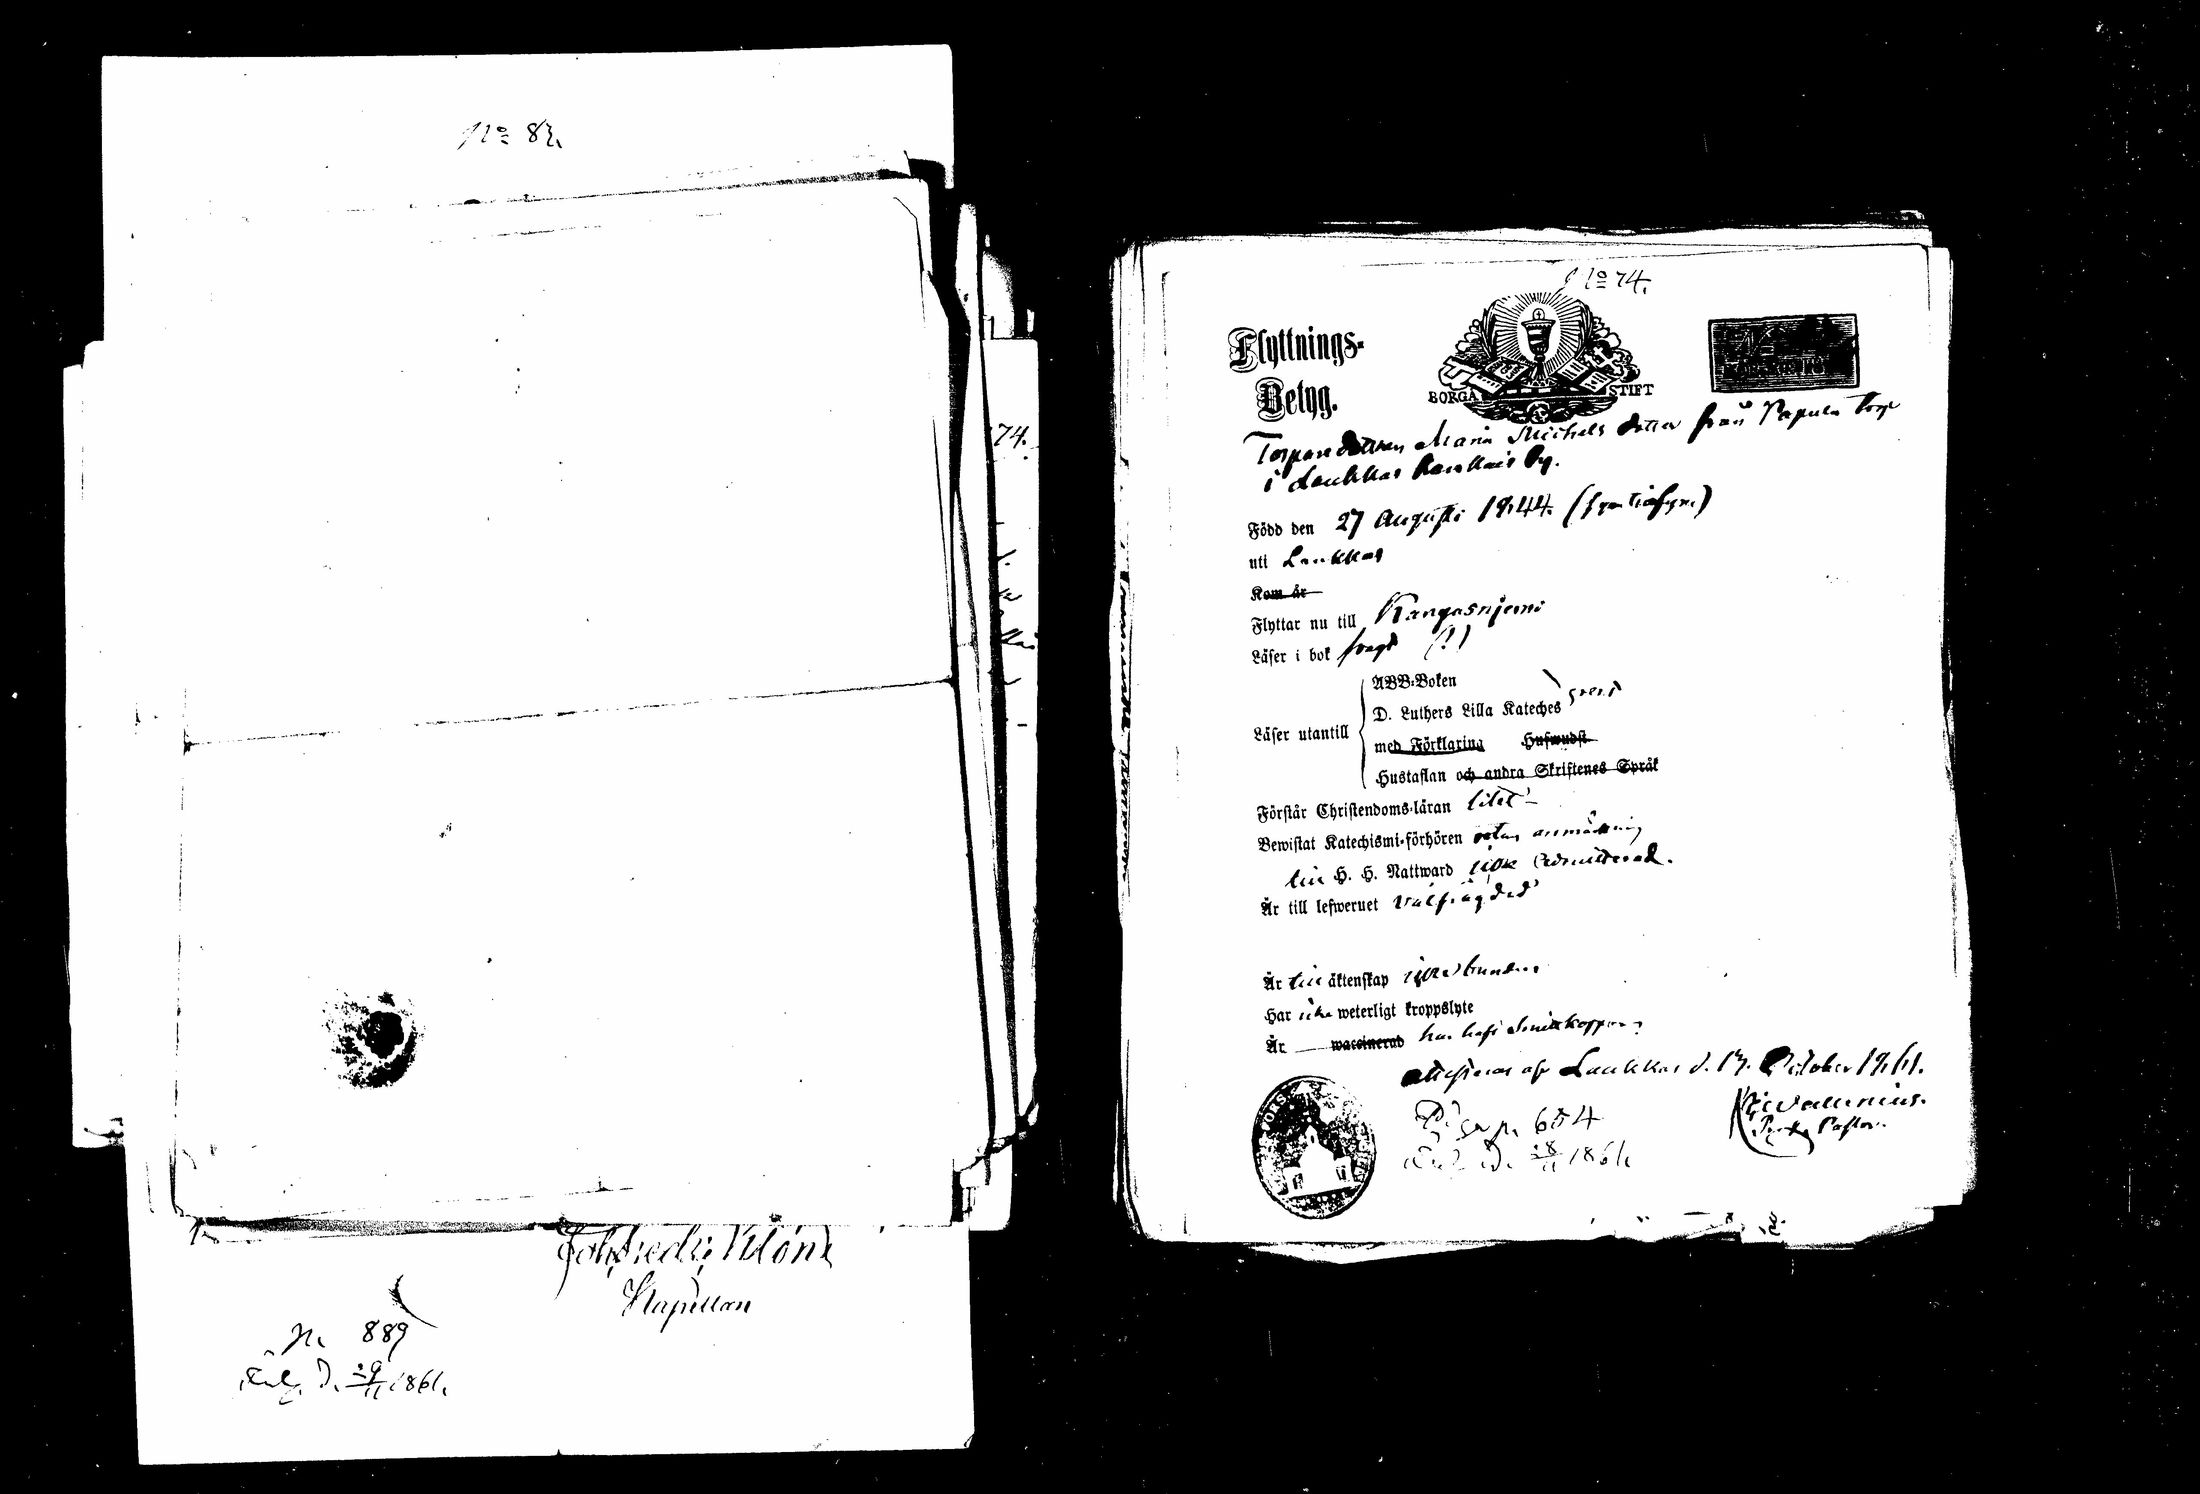 No 83.
Joh. Fredr. Klön
Kapellan
N. 889
d. 29/11 1861.
74.
No 74.
Flyttnings-
Betyg.
BORGÅ STIFT
Torparedottren Maria Michels dotter från Papula torp
i Laukkas by.
Född den 27 Augusti 1844. (fyratiofyra)
uti Laukkas
Kom år
Flyttar nu till Kangasnjemi
Läser i bok svagt (!)
ABB-Boken
D. Luthers Lilla Kateches
Läser utantill
med Förklaring Huswudst.
Hustaflan och andra Skriftenes Språk
Förstår Christendoms-läran litet
Bewistat Katechismi-förhören utan anmärkning
till H. H. Nattward icke admitterad.
Är till lefwernet välfrägdad
Är till äktenskap icke bunden
Har icke weterligt kroppslyte
Är waccinerad har haft Smittkoppor
Attesteras af Laukkas d. 13. October 1861.
Wallenius.
Pastor.
Piga p. 654
d. 28/11 1861.